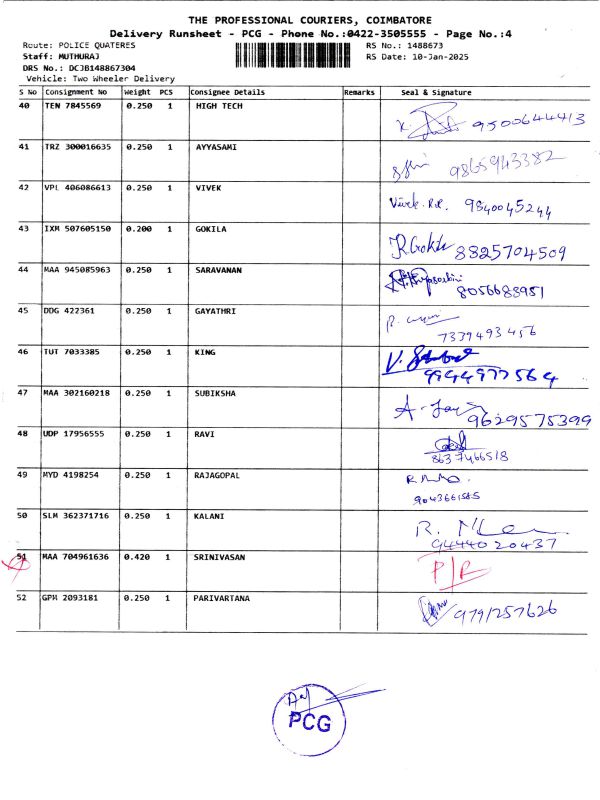 THE PROFESSIONAL COURIERS, COIMBATORE
Delivery Runsheet - PCG - Phone No.:0422-3505555 - Page No.:4
Route: POLICE QUATERES RS No.: 1488673
Staff: MUTHURAJ RS Date: 10-Jan-2025
DRS No.: DCJB148867304
Vehicle: Two Wheeler Delivery
S No Consignment No Weight PCS Consignee Details Remarks Seal & Signature
40 TEN 7845569 0.250 1 HIGH TECH 9500644413
41 TRZ 300016635 0.250 1 AYYASAMI 9865943382
42 VPL 406086613 0.250 1 VIVEK Vivek. 9840045244
43 IXM 507605150 0.200 1 GOKILA R.Gokila 8825704509
44 MAA 945085963 0.250 1 SARAVANAN 8056683951
45 DDG 422361 0.250 1 GAYATHRI 7339493456
46 TUT 7033385 0.250 1 KING 9944977564
47 MAA 302160218 0.250 1 SUBIKSHA 9629575399
48 UDP 17956555 0.250 1 RAVI 8637466518
49 MYD 4198254 0.250 1 RAJAGOPAL
50 SLM 362371716 0.250 1 KALANI 9444020437
51 MAA 704961636 0.420 1 SRINIVASAN P/R
52 GPM 2093181 0.250 1 PARIVARTANA 9791257626
PCG